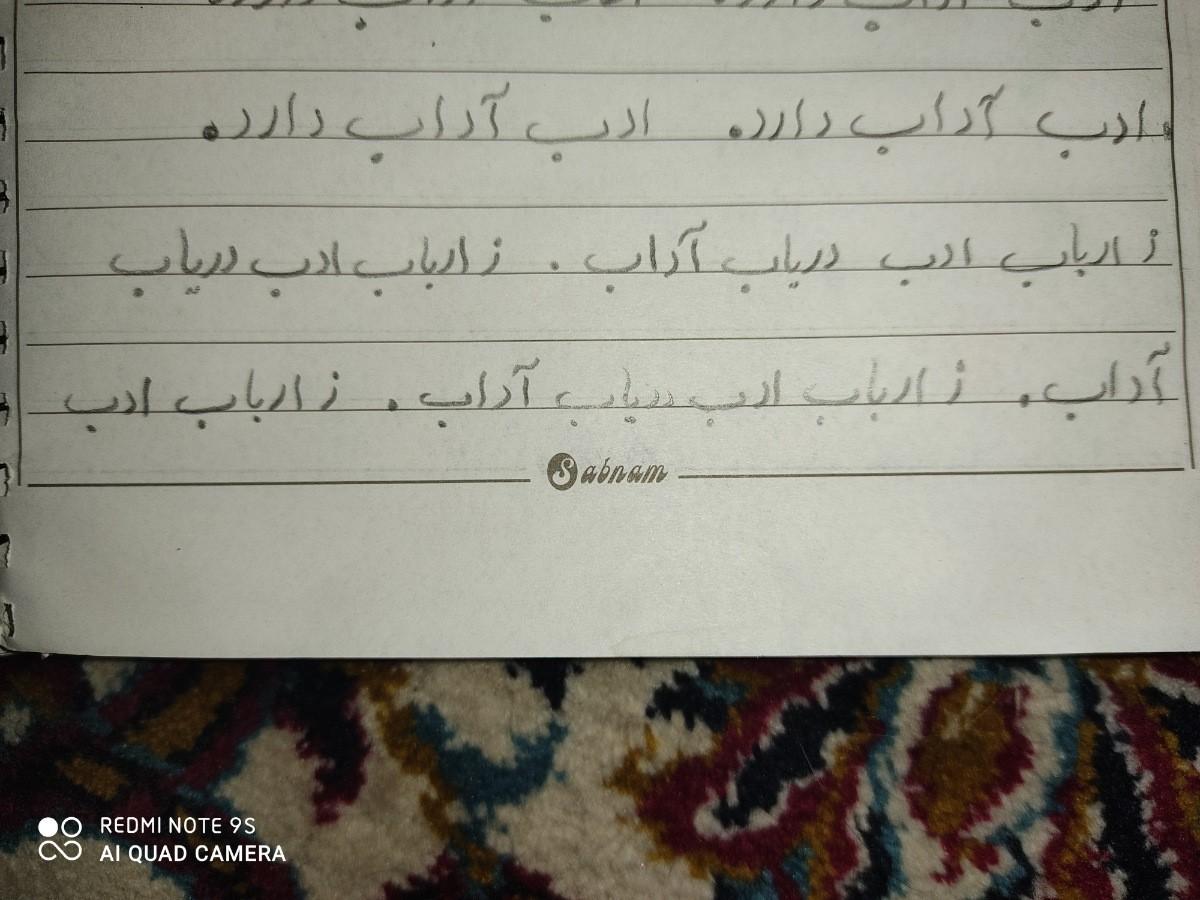 ادب آداب دارد. ادب آداب دارد.
ز ارباب ادب دریاب آداب. ز ارباب ادب دریاب
آداب. ز ارباب ادب دریاب آداب. ز ارباب ادب
Sabnam
REDMI NOTE 9S
AI QUAD CAMERA